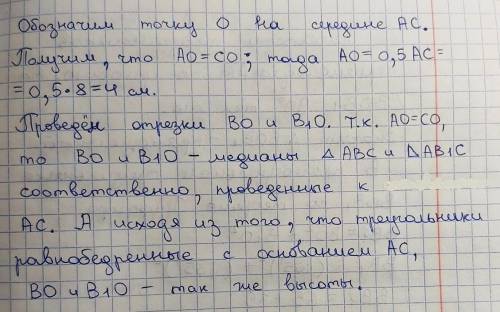 Обозначим точку О на середине АС.
Получим, что АО=СО; тогда АО=0,5 АС=
=0,5•8=4 см.
Проведём отрезки ВО и В1О. Т.к. АО=СО,
то ВО и В1О – медианы △ АВС и △АВ1С
соответственно, проведенные к
АС. А исходя из того, что треугольники
равнобедренные с основанием АС,
ВО и В1О – так же высоты.